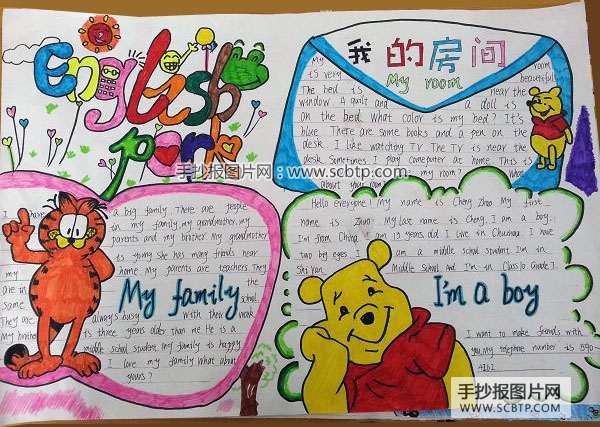 English
park
手抄报图片网:www.scbtp.com
我的房间
My room
My room
is very beautiful
The bed is near the
window. A quilt and a doll is
on the bed. What color is my bed? It's
blue. There are some books and a pen on the
desk. I like watching TV. The TV is near the
desk. Sometimes I play computer at home. This is
my room? What
about your room?
I have a big family. There are people
in my family, my grandmother, my
parents and my brother. My grandmother
is young. She has many friends near
my home. My parents are teachers. They
are in the
same school.
They are always busy with their work
My brother is three years older than me. He is a
middle school student. My family is happy
I love my family. What about
yours?
My family
Hello everyone! My name is Cheng Zhao. My first
name is Zhao. My last name is Cheng. I am a boy.
I'm from China. I am 13 years old. I live in Chuzhou. I have
two big eyes. I am a middle school student. I'm in
Middle School. And I'm in Class 10 Grade 7.
I'm a boy
I want to make friends with
you. My telephone number is 590-
4162
手抄报图片网
WWW.SCBTP.COM